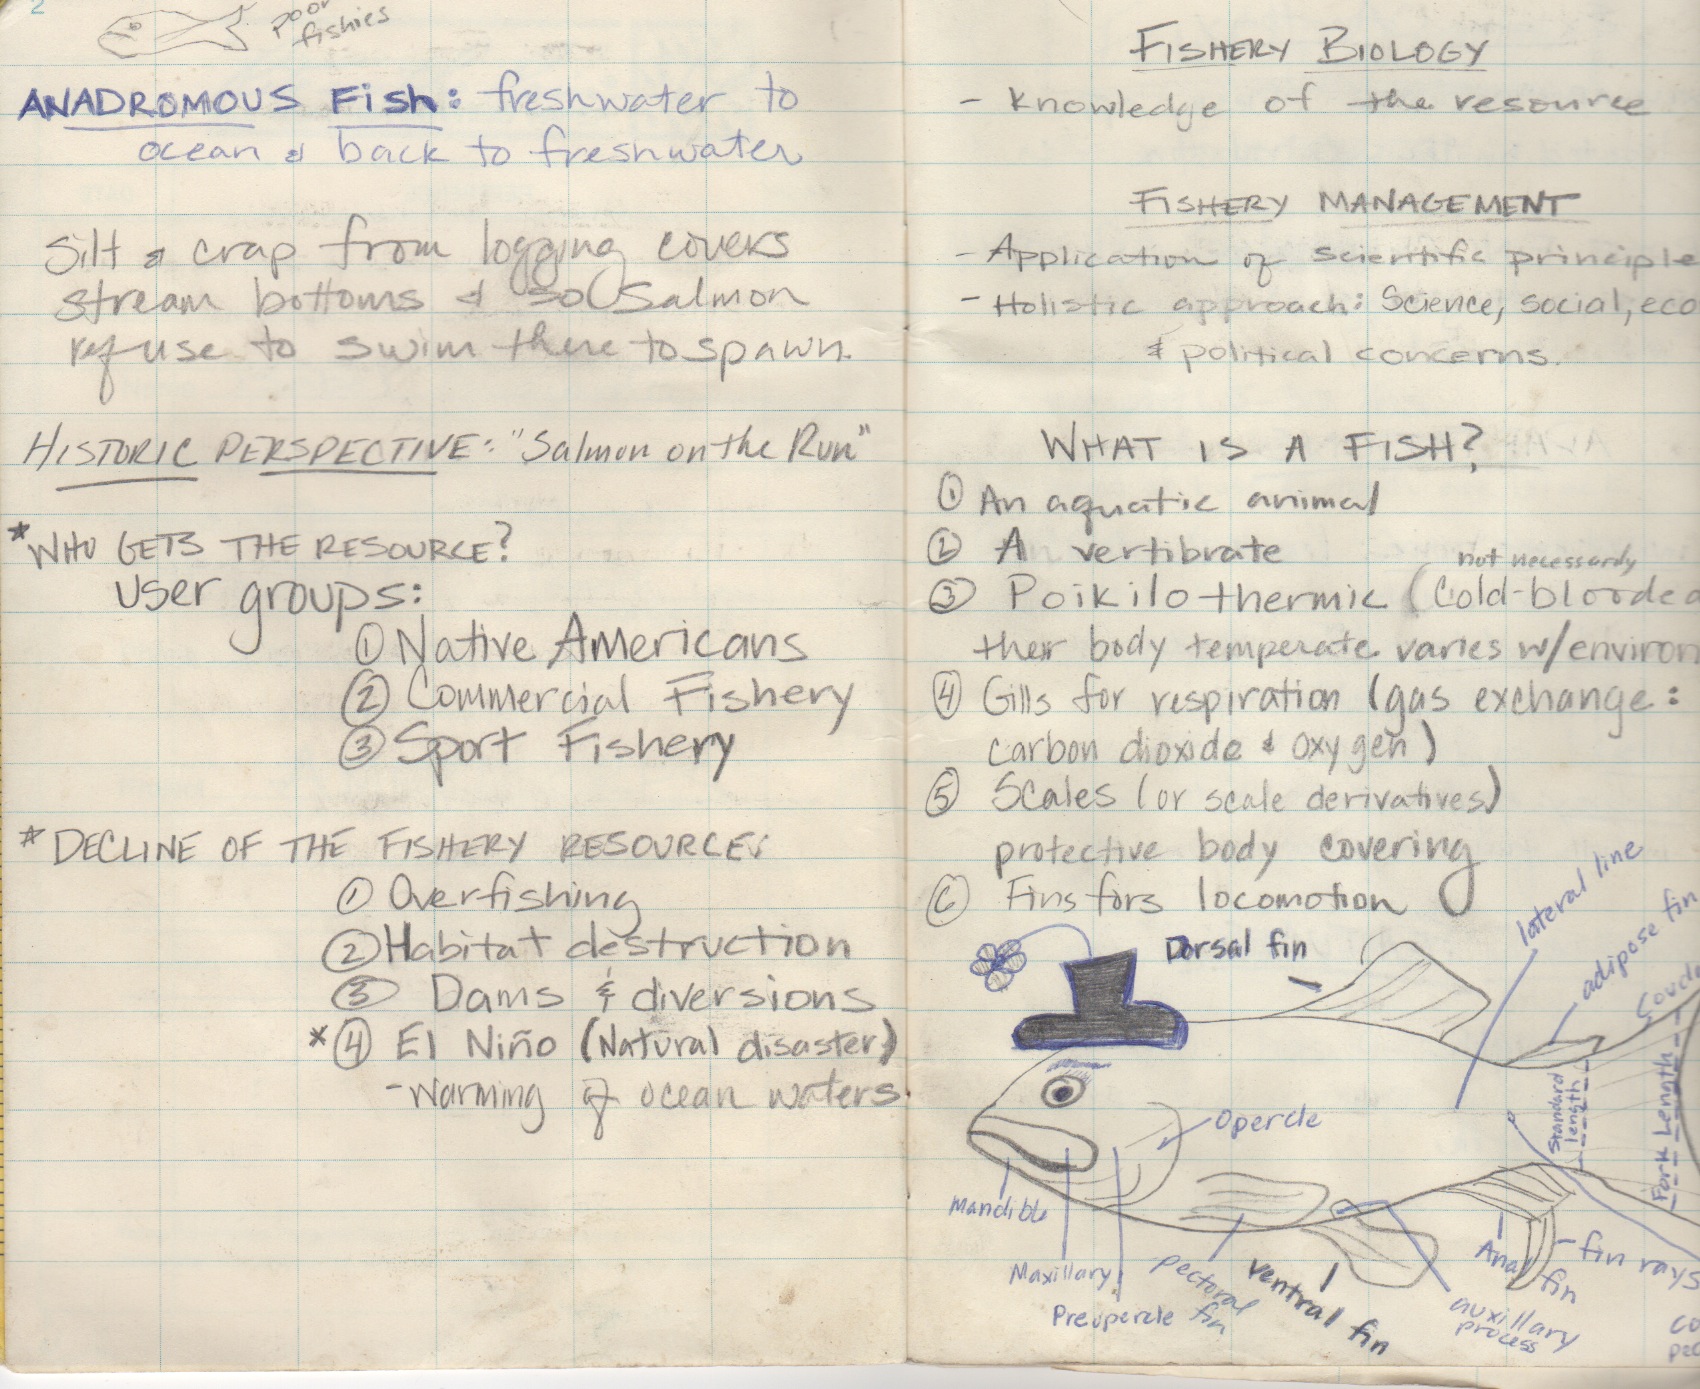 2
poor
fishies
ANADROMOUS Fish: freshwater to
ocean & back to freshwater
Silt & crap from logging covers
stream bottoms & so salmon
refuse to swim there to spawn.
HISTORIC PERSPECTIVE: "Salmon on the Run"
*WHO GETS THE RESOURCE?
User groups:
① Native Americans
② Commercial Fishery
③ Sport Fishery
*DECLINE OF THE FISHERY RESOURCE:
① Overfishing
② Habitat destruction
③ Dams & diversions
*④ El Niño (Natural disaster)
-Warming of ocean waters.
FISHERY BIOLOGY
- Knowledge of the resource
FISHERY MANAGEMENT
- Application of scientific principle
- Holistic approach: Science, social, eco
& political concerns.
WHAT IS A FISH?
① An aquatic animal
② A vertibrate
not necessarily
③ Poikilothermic (Cold-blooded
their body temperate varies w/environ
④ Gills for respiration (gas exchange:
carbon dioxide & oxygen)
⑤ Scales (or scale derivatives)
protective body covering
⑥ Fins fors locomotion
lateral line
adipose fin
Dorsal fin
Standard
length
Fork Length
Opercle
Mandible
Maxillary
Preopercle
pectoral
fin
ventral fin
auxillary
process
Anal
fin
- fin rays
co
pec